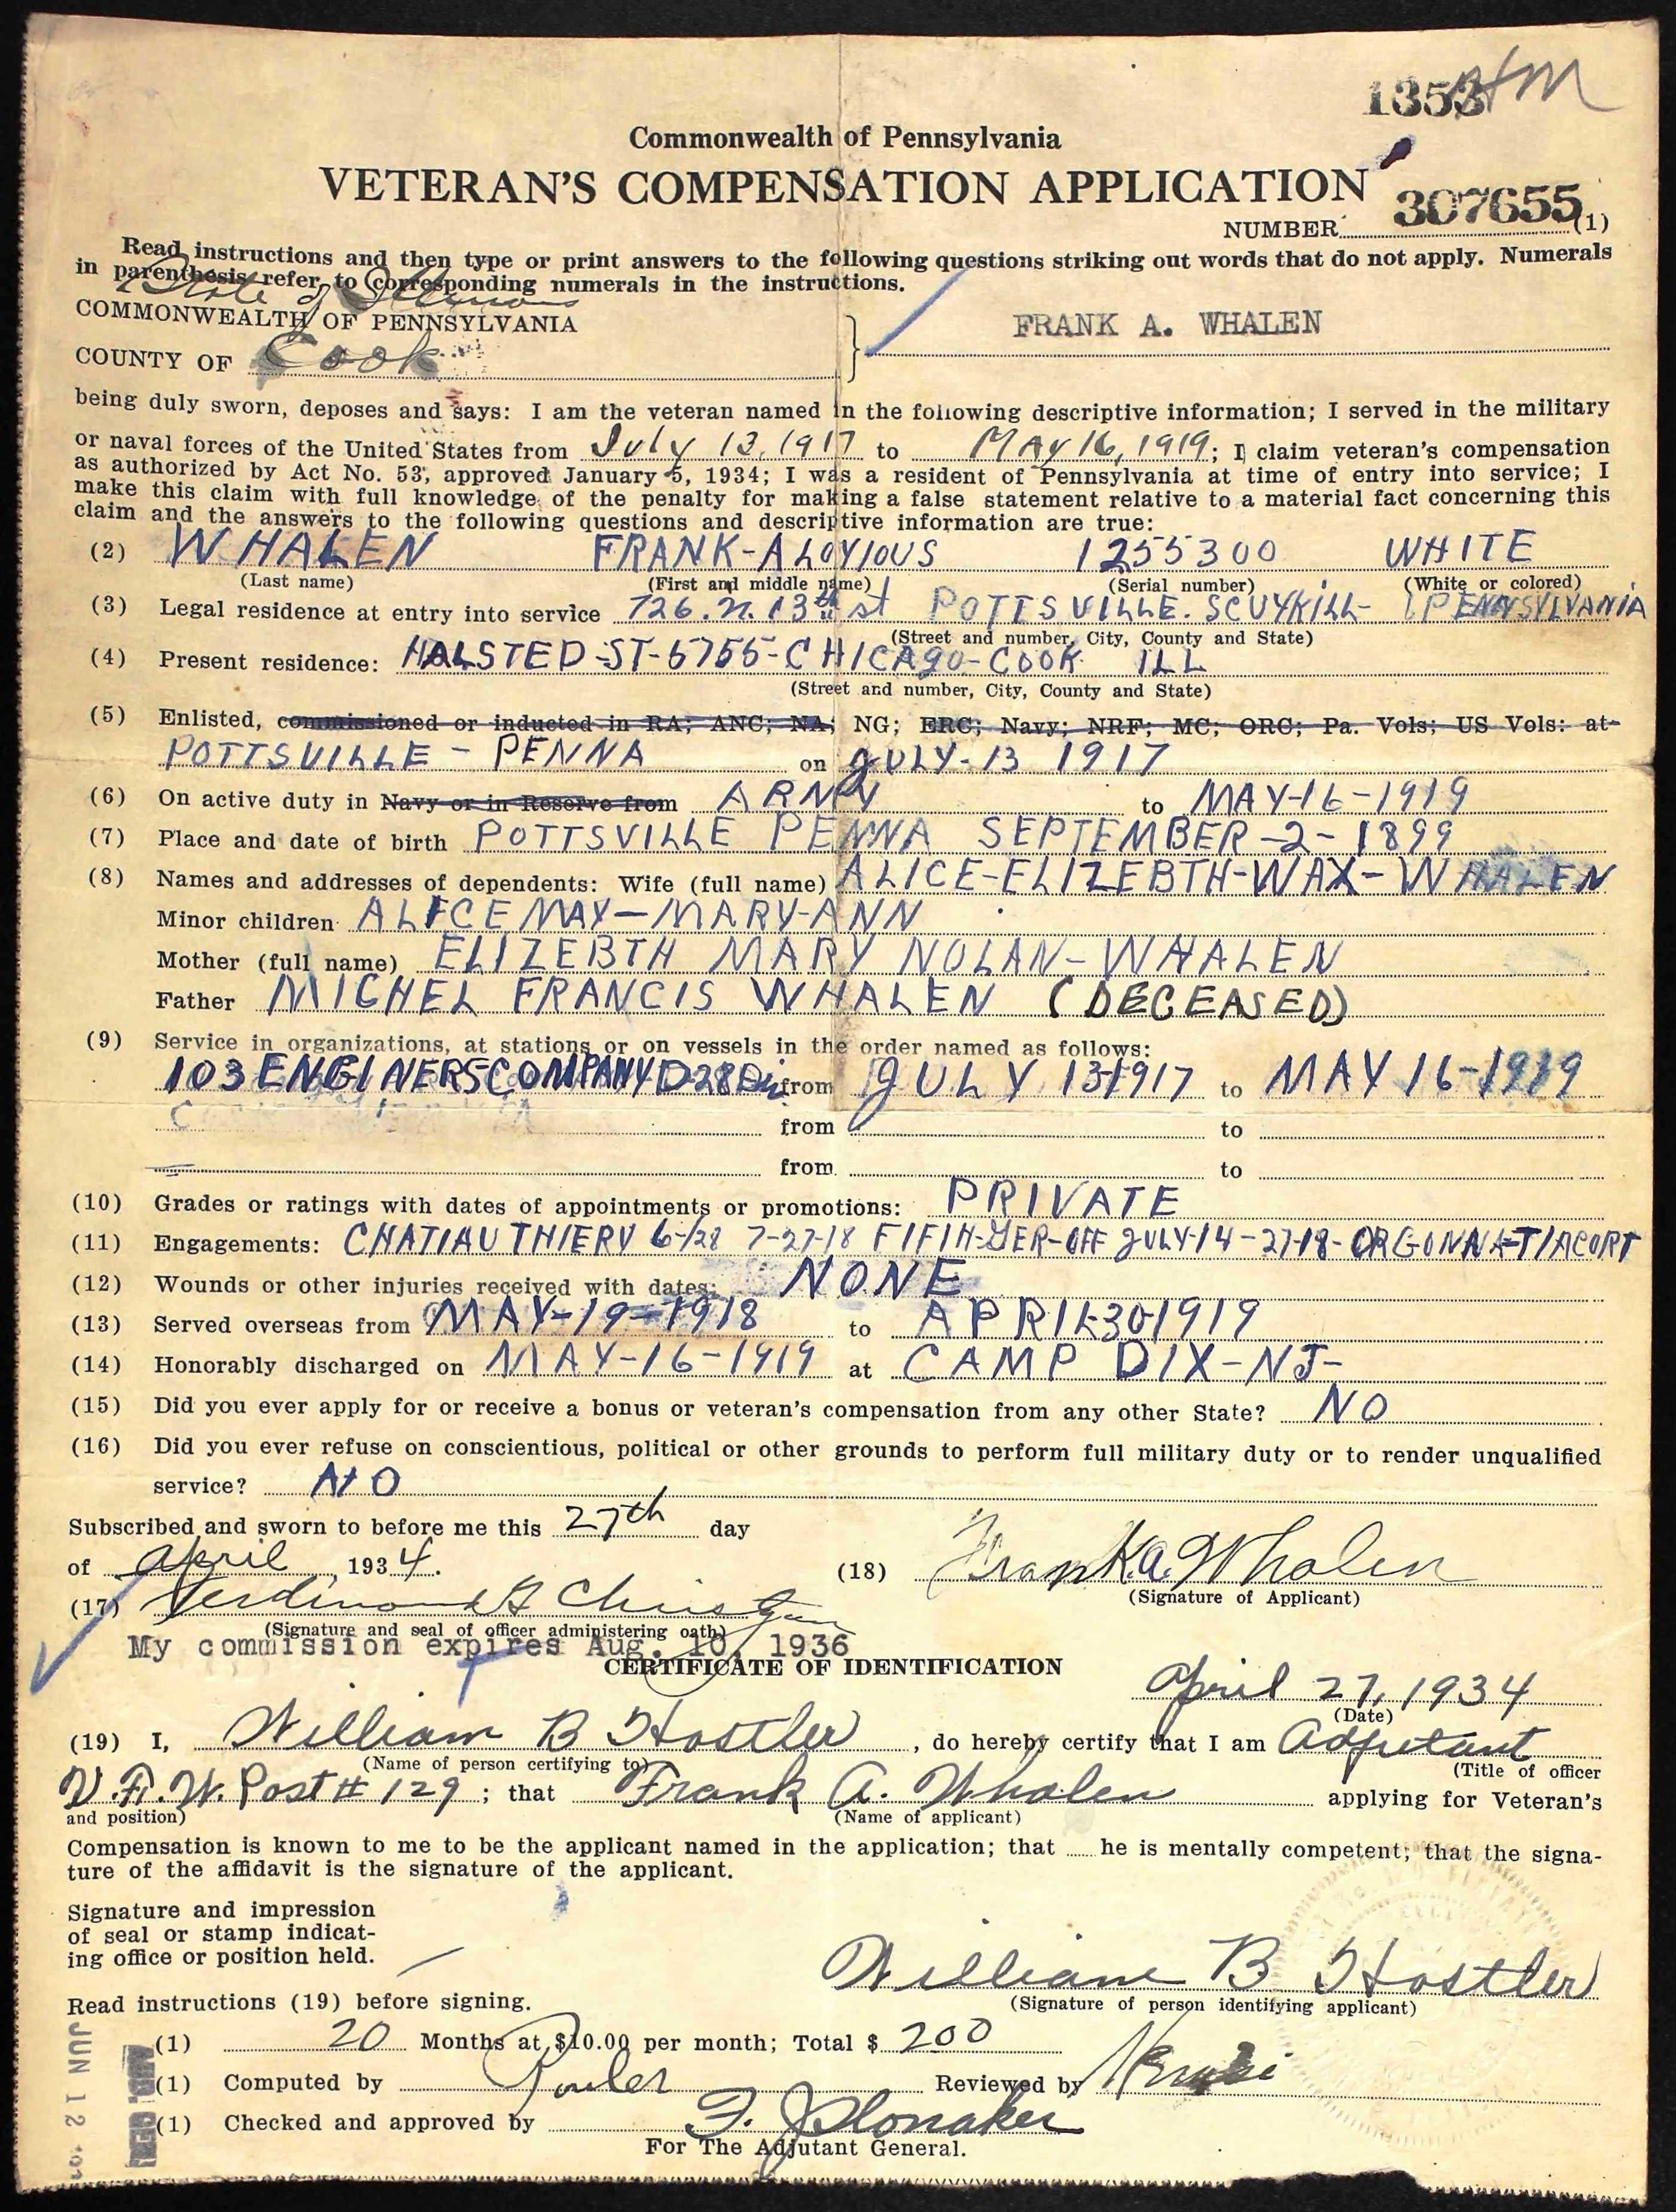 1353 HM
Commonwealth of Pennsylvania
VETERAN'S COMPENSATION APPLICATION
NUMBER 307655 (1)
Read instructions and then type or print answers to the following questions striking out words that do not apply. Numerals
in parenthesis refer to corresponding numerals in the instructions.
State of Illinois
COMMONWEALTH OF PENNSYLVANIA
FRANK A. WHALEN
COUNTY OF Cook
being duly sworn, deposes and says: I am the veteran named in the following descriptive information; I served in the military
or naval forces of the United States from July 13, 1917 to MAY 16, 1919; I claim veteran's compensation
as authorized by Act No. 53, approved January 5, 1934; I was a resident of Pennsylvania at time of entry into service; I
make this claim with full knowledge of the penalty for making a false statement relative to a material fact concerning this
claim and the answers to the following questions and descriptive information are true:
(2) WHALEN FRANK-ALOYIOUS 1255300 WHITE
(Last name) (First and middle name) (Serial number) (White or colored)
(3) Legal residence at entry into service 726. N. 13th st POTTSVILLE. SCUYKILL- PENNSYLVANIA
(Street and number, City, County and State)
(4) Present residence: HALSTED-ST-5755-CHICAgO-COOK ILL
(Street and number, City, County and State)
(5) Enlisted, commissioned or inducted in RA; ANC; NA; NG; ERC; Navy; NRF; MC; ORC; Pa. Vols; US Vols: at
POTTSVILLE - PENNA on JULY-13 1917
(6) On active duty in Navy or in Reserve from ARMY to MAY-16-1919
(7) Place and date of birth POTTSVILLE PENNA SEPTEMBER-2-1899
(8) Names and addresses of dependents: Wife (full name) ALICE-ELIZEBTH-WAX-WHALEN
Minor children ALICE MAY-MARY-ANN
Mother (full name) ELIZEBTH MARY NOLAN-WHALEN
Father MICHEL FRANCIS WHALEN (DECEASED)
(9) Service in organizations, at stations or on vessels in the order named as follows:
103 ENGINERS COMPANY D-28 Div from JULY 13-1917 to MAY 16-1919
from to
from to
(10) Grades or ratings with dates of appointments or promotions: PRIVATE
(11) Engagements: CHATIAU THIERV 6-/28 7-27-18 FIFIH-GER-OFF JULY-14-27-18-ORGONNA-TIACORT
(12) Wounds or other injuries received with dates: NONE
(13) Served overseas from MAY-19-1918 to APRIL-30-1919
(14) Honorably discharged on MAY-16-1919 at CAMP DIX-NJ-
(15) Did you ever apply for or receive a bonus or veteran's compensation from any other State? NO
(16) Did you ever refuse on conscientious, political or other grounds to perform full military duty or to render unqualified
service? NO
Subscribed and sworn to before me this 27th day
of April, 1934.
(18) Frank A. Whalen
(Signature of Applicant)
(17)
(Signature and seal of officer administering oath)
My commission expires Aug. 10, 1936
CERTIFICATE OF IDENTIFICATION
April 27, 1934
(Date)
(19) I, William B Hostler, do hereby certify that I am Adjutant
(Name of person certifying to) (Title of officer
V.F.W. Post # 129; that Frank A. Whalen applying for Veteran's
and position) (Name of applicant)
Compensation is known to me to be the applicant named in the application; that he is mentally competent; that the signa-
ture of the affidavit is the signature of the applicant.
Signature and impression
of seal or stamp indicat-
ing office or position held.
William B Hostler
(Signature of person identifying applicant)
Read instructions (19) before signing.
(1) 20 Months at $10.00 per month; Total $ 200
(1) Computed by Reviewed by
(1) Checked and approved by
For The Adjutant General.
JUN 12